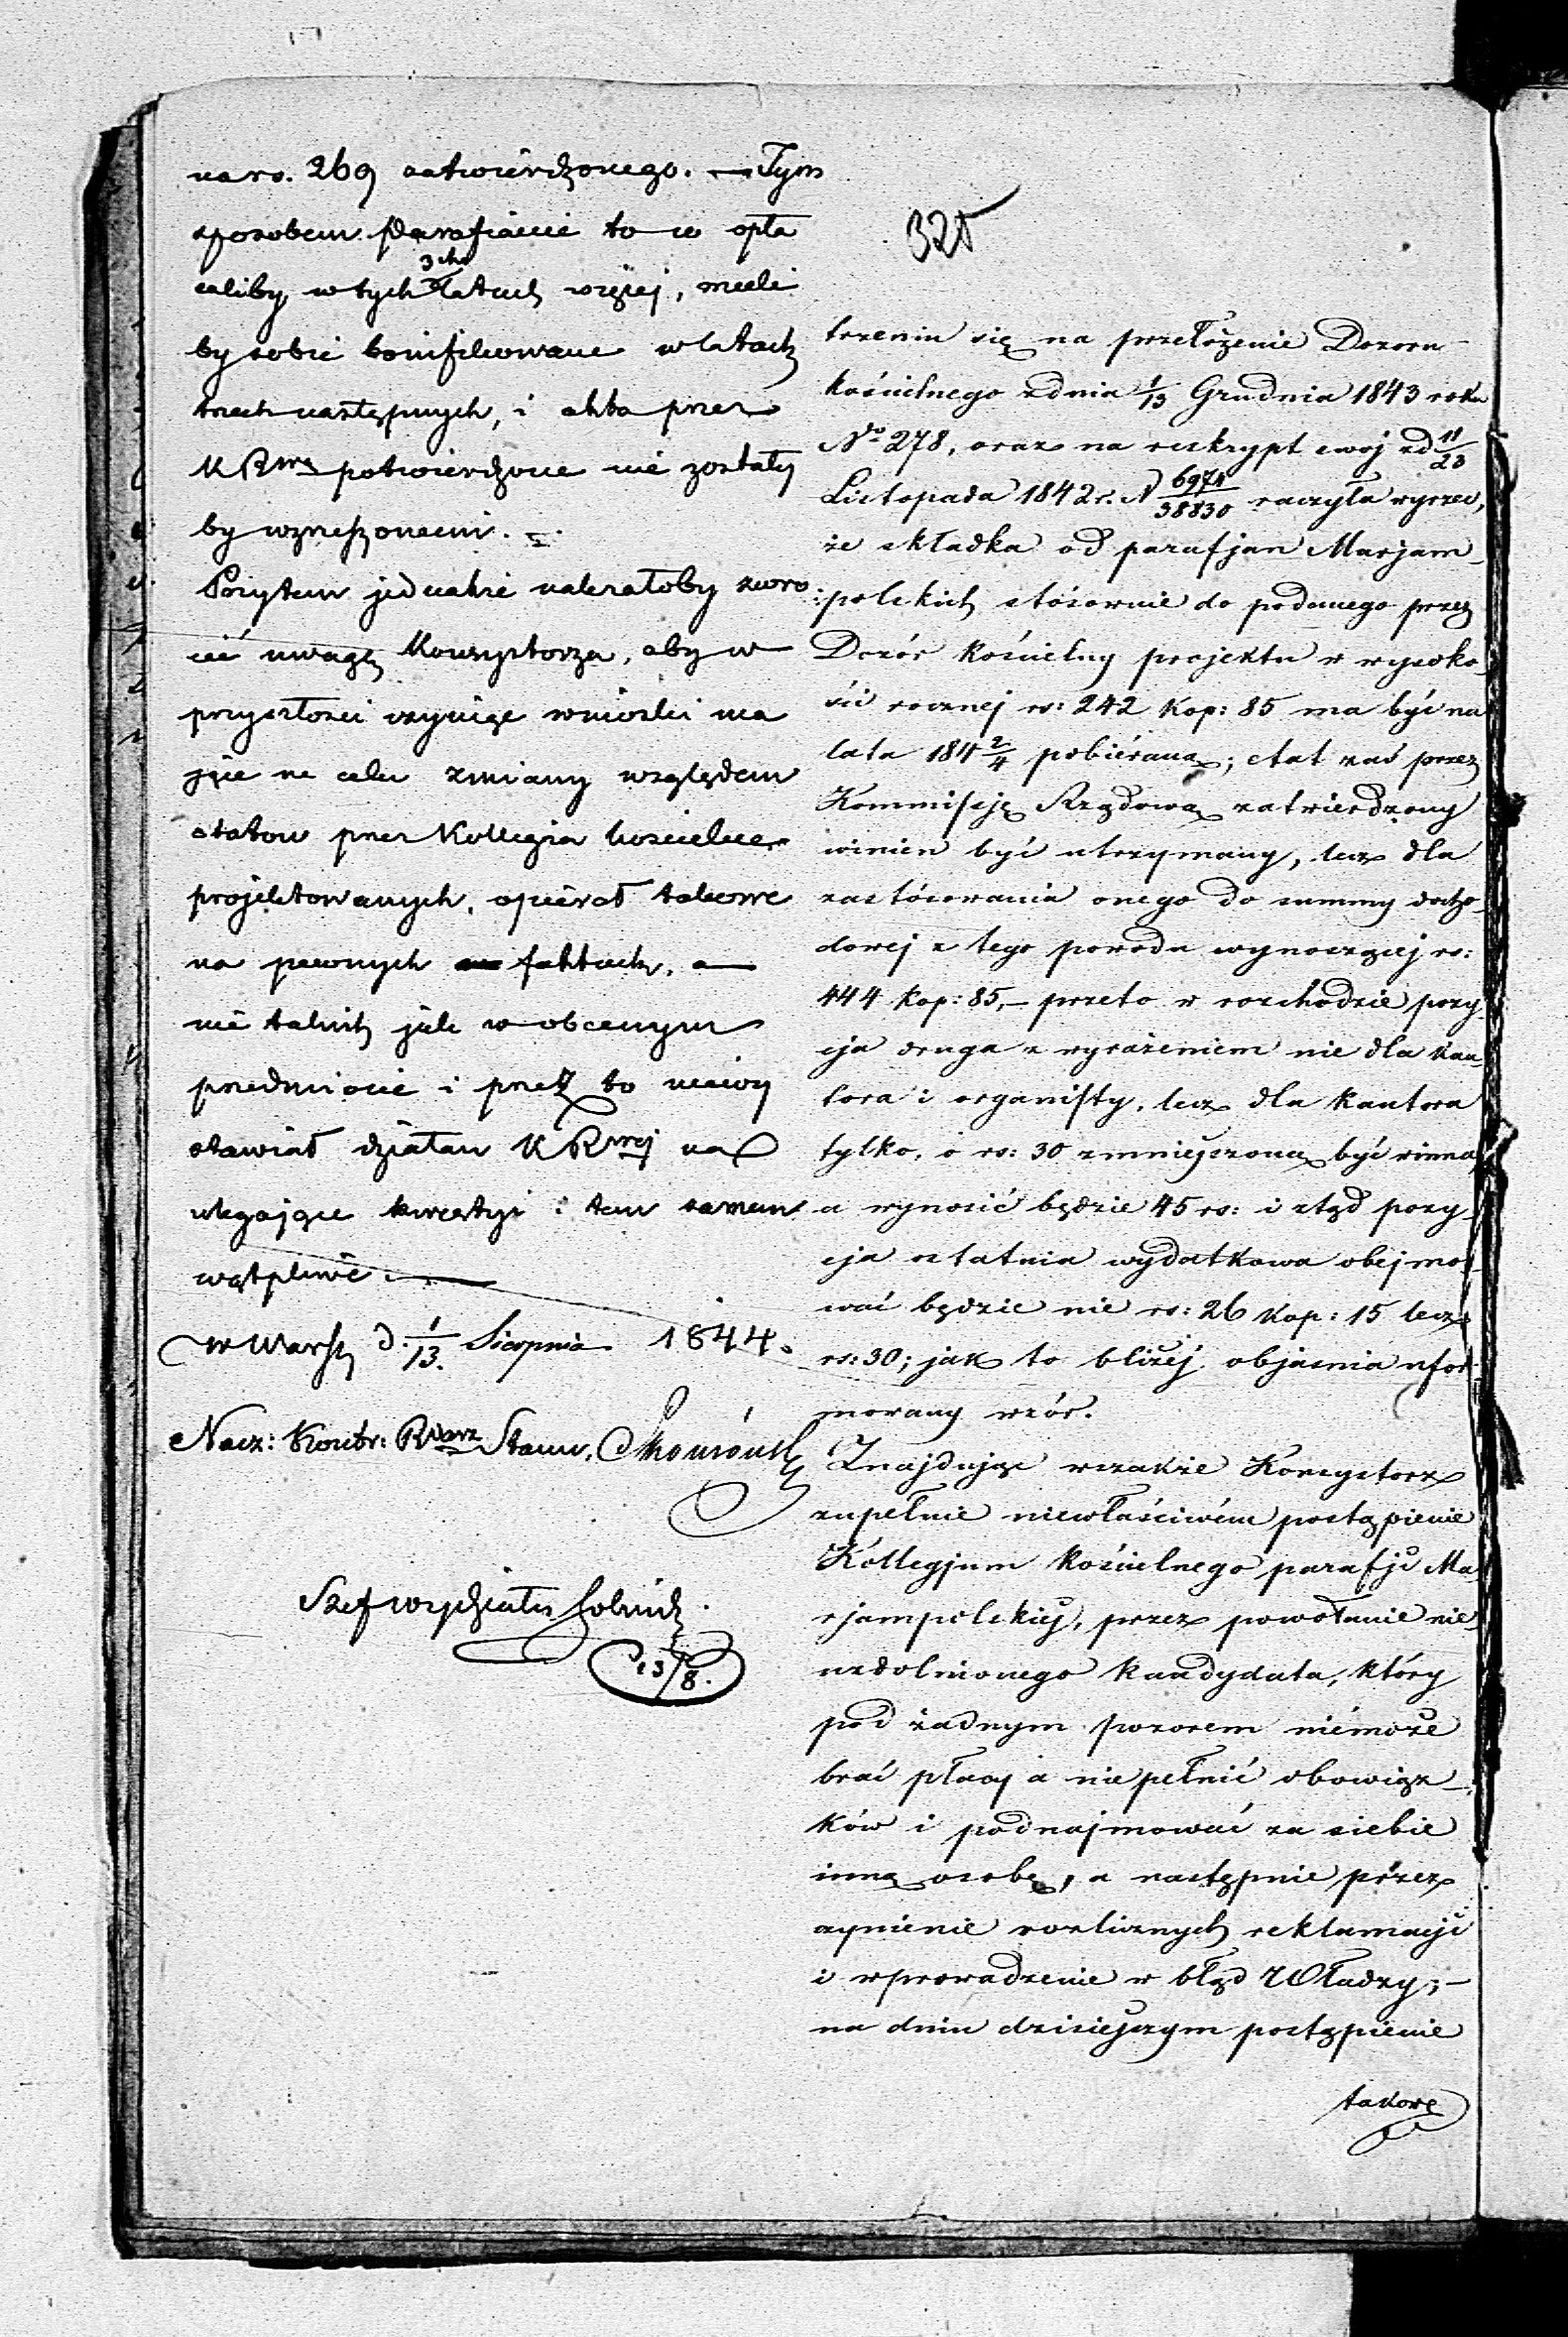 na rs. 269 zatwierdzonego. — Tym
sposobem Parafianie to co opła
caliby w tych 3ch latach więcej, mieli
by sobie bonifikowane w latach
trzech następnych, i akta przez
K R wą potwierdzone nie zostały
by wzruszonemi. —
Pozytem jednakże należałoby zwró
cić uwagę Konsystorza, aby w
przyszłości czyniąc wnioski ma
jące na celu zmiany względem
etatow przez Kollegia kościelne
projektowanych, opierał takowe
na pewnych faktach, a
nie takich jak w obecnym
przedmiocie i przez to nie
stawiał działań K R wej na
ulegające kwestyi i tem samem
wątpliwe. —
w Warsz d. 1/13. Sierpnia 1844.
Nacz: Kontr: Stanu,
Szef wydziału
13/8.
325
trzeniu się na przełożenie Dozoru
kościelnego z dnia 1/13 Grudnia 1843 roku
No 278, oraz na reskrypt swój z d 11/23
Listopada 1842 r. N 6974/38830 raczyła wyrzec,
że składka od parafjan Marjam-
:polskich stósownie do podanego przez
Dozór kościelny projektu w wysoko-
ści rocznej rs: 242 kop: 85 ma być na
lata 184 2/4 pobiérana; etat zaś przez
Kommissję Rządową zatwierdzony
winien być utrzymany, lecz dla
zastósowania onego do summy docho-
dowej z tego powodu wynoszącej rs:
444 kop: 85, — przeto w rozchodzie pozy-
cja druga z wyrażeniem nie dla kan-
tora i organisty, lecz dla kantora
tylko, o rs: 30 zmniejszoną być winna,
a wynosić będzie 45 rs: i ztąd pozy-
cja ostatnia wydatkowa obejmo-
wać będzie nie rs: 26 kop: 15 lecz
rs: 30; jak to bliżej objaśnia ufor-
mowany wzór.
Znajdując wszakże Konsystorz
zupełnie niewłaściwém postąpienie
Kollegjum kościelnego parafji Ma-
rjampolskiej, przez powołanie nie-
uzdolnionego kandydata, który
pod żadnym pozorem niémoże
brać płacy a nie pełnić obowiąz-
ków i podnajmować za siebie
inną osobę, a następnie przez
czynienie rozlicznych reklamacji
i wprowadzenie w błąd Władzy; —
na dniu dzisiejszym postąpienie
takowe